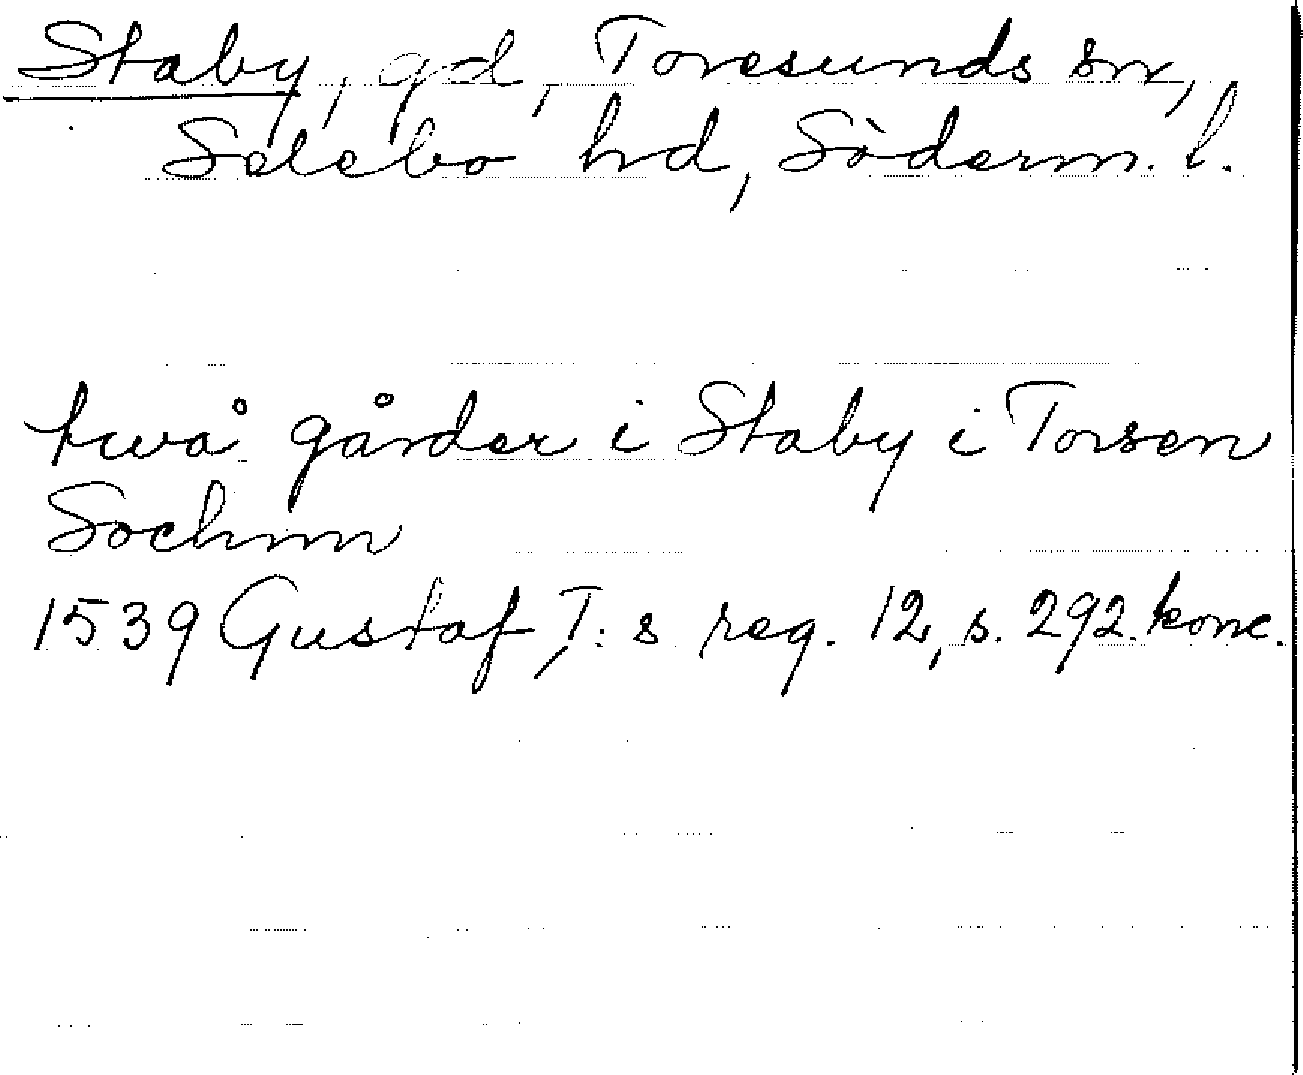 Staby, gd, Toresunds sn,
Selebo hd, Söderm. l.
twå gårder i Staby i Torsen
Sochnn
1539 Gustaf I:s reg. 12, s. 292. konc.